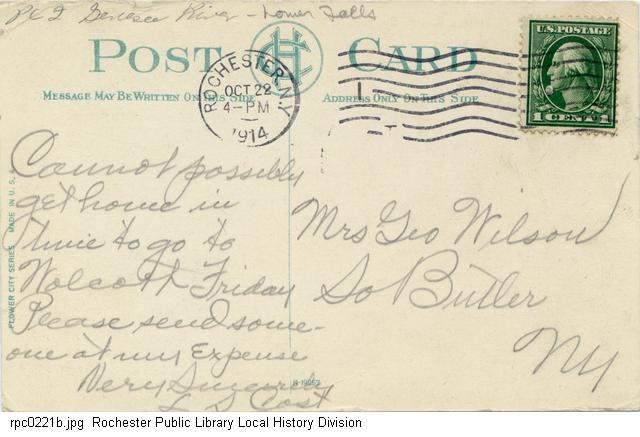 PC2 Genesee River - Lower Falls
POST CARD
MESSAGE MAY BE WRITTEN ON THIS SIDE
ADDRESS ONLY ON THIS SIDE
ROCHESTER, N.Y.
OCT 22
4-PM
1914
U.S. POSTAGE
1 CENT 1
Cannot possibly
get home in
time to go to
Wolcott Friday
Please send some-
one at my Expense
Very Sincerely
L S Cost
Mrs Geo Wilson
So Butler
NY
FLOWER CITY SERIES MADE IN U.S.A.
rpc0221b.jpg Rochester Public Library Local History Division